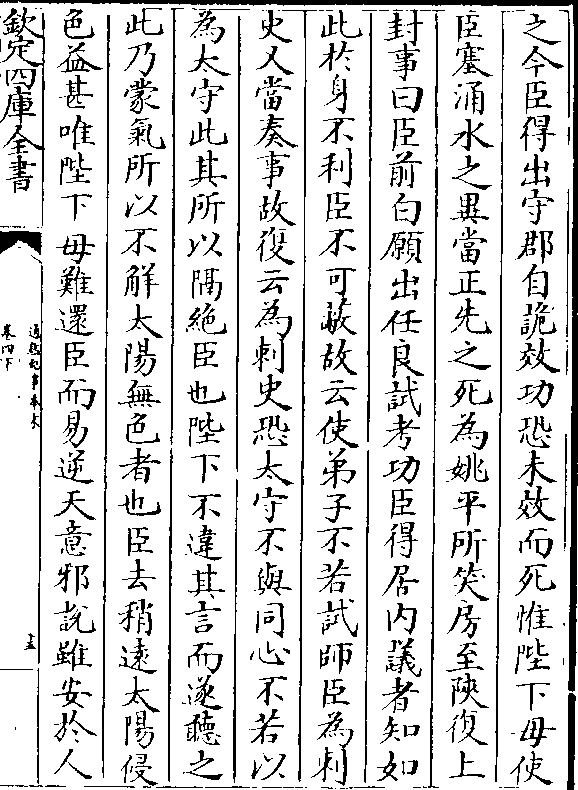 之今臣得出守郡自詭效功恐未效而死惟陛下毋使
臣塞涌水之異當正先之死為姚平所笑房至陝復上
封事曰臣前白願出任良試考功臣得居内議者知如
此於身不利臣不可蔽故云使弟子不若試師臣為刺
史又當奏事故復云為刺史恐太守不與同心不若以
為太守此其所以隔絶臣也陛下不違其言而遂聽之
此乃蒙氣所以不解太陽無色者也臣去稍逺太陽侵
色益甚唯陛下毋難還臣而易逆天意邪說雖安於人
欽定四庫全書
通鑑紀事本末
卷四下